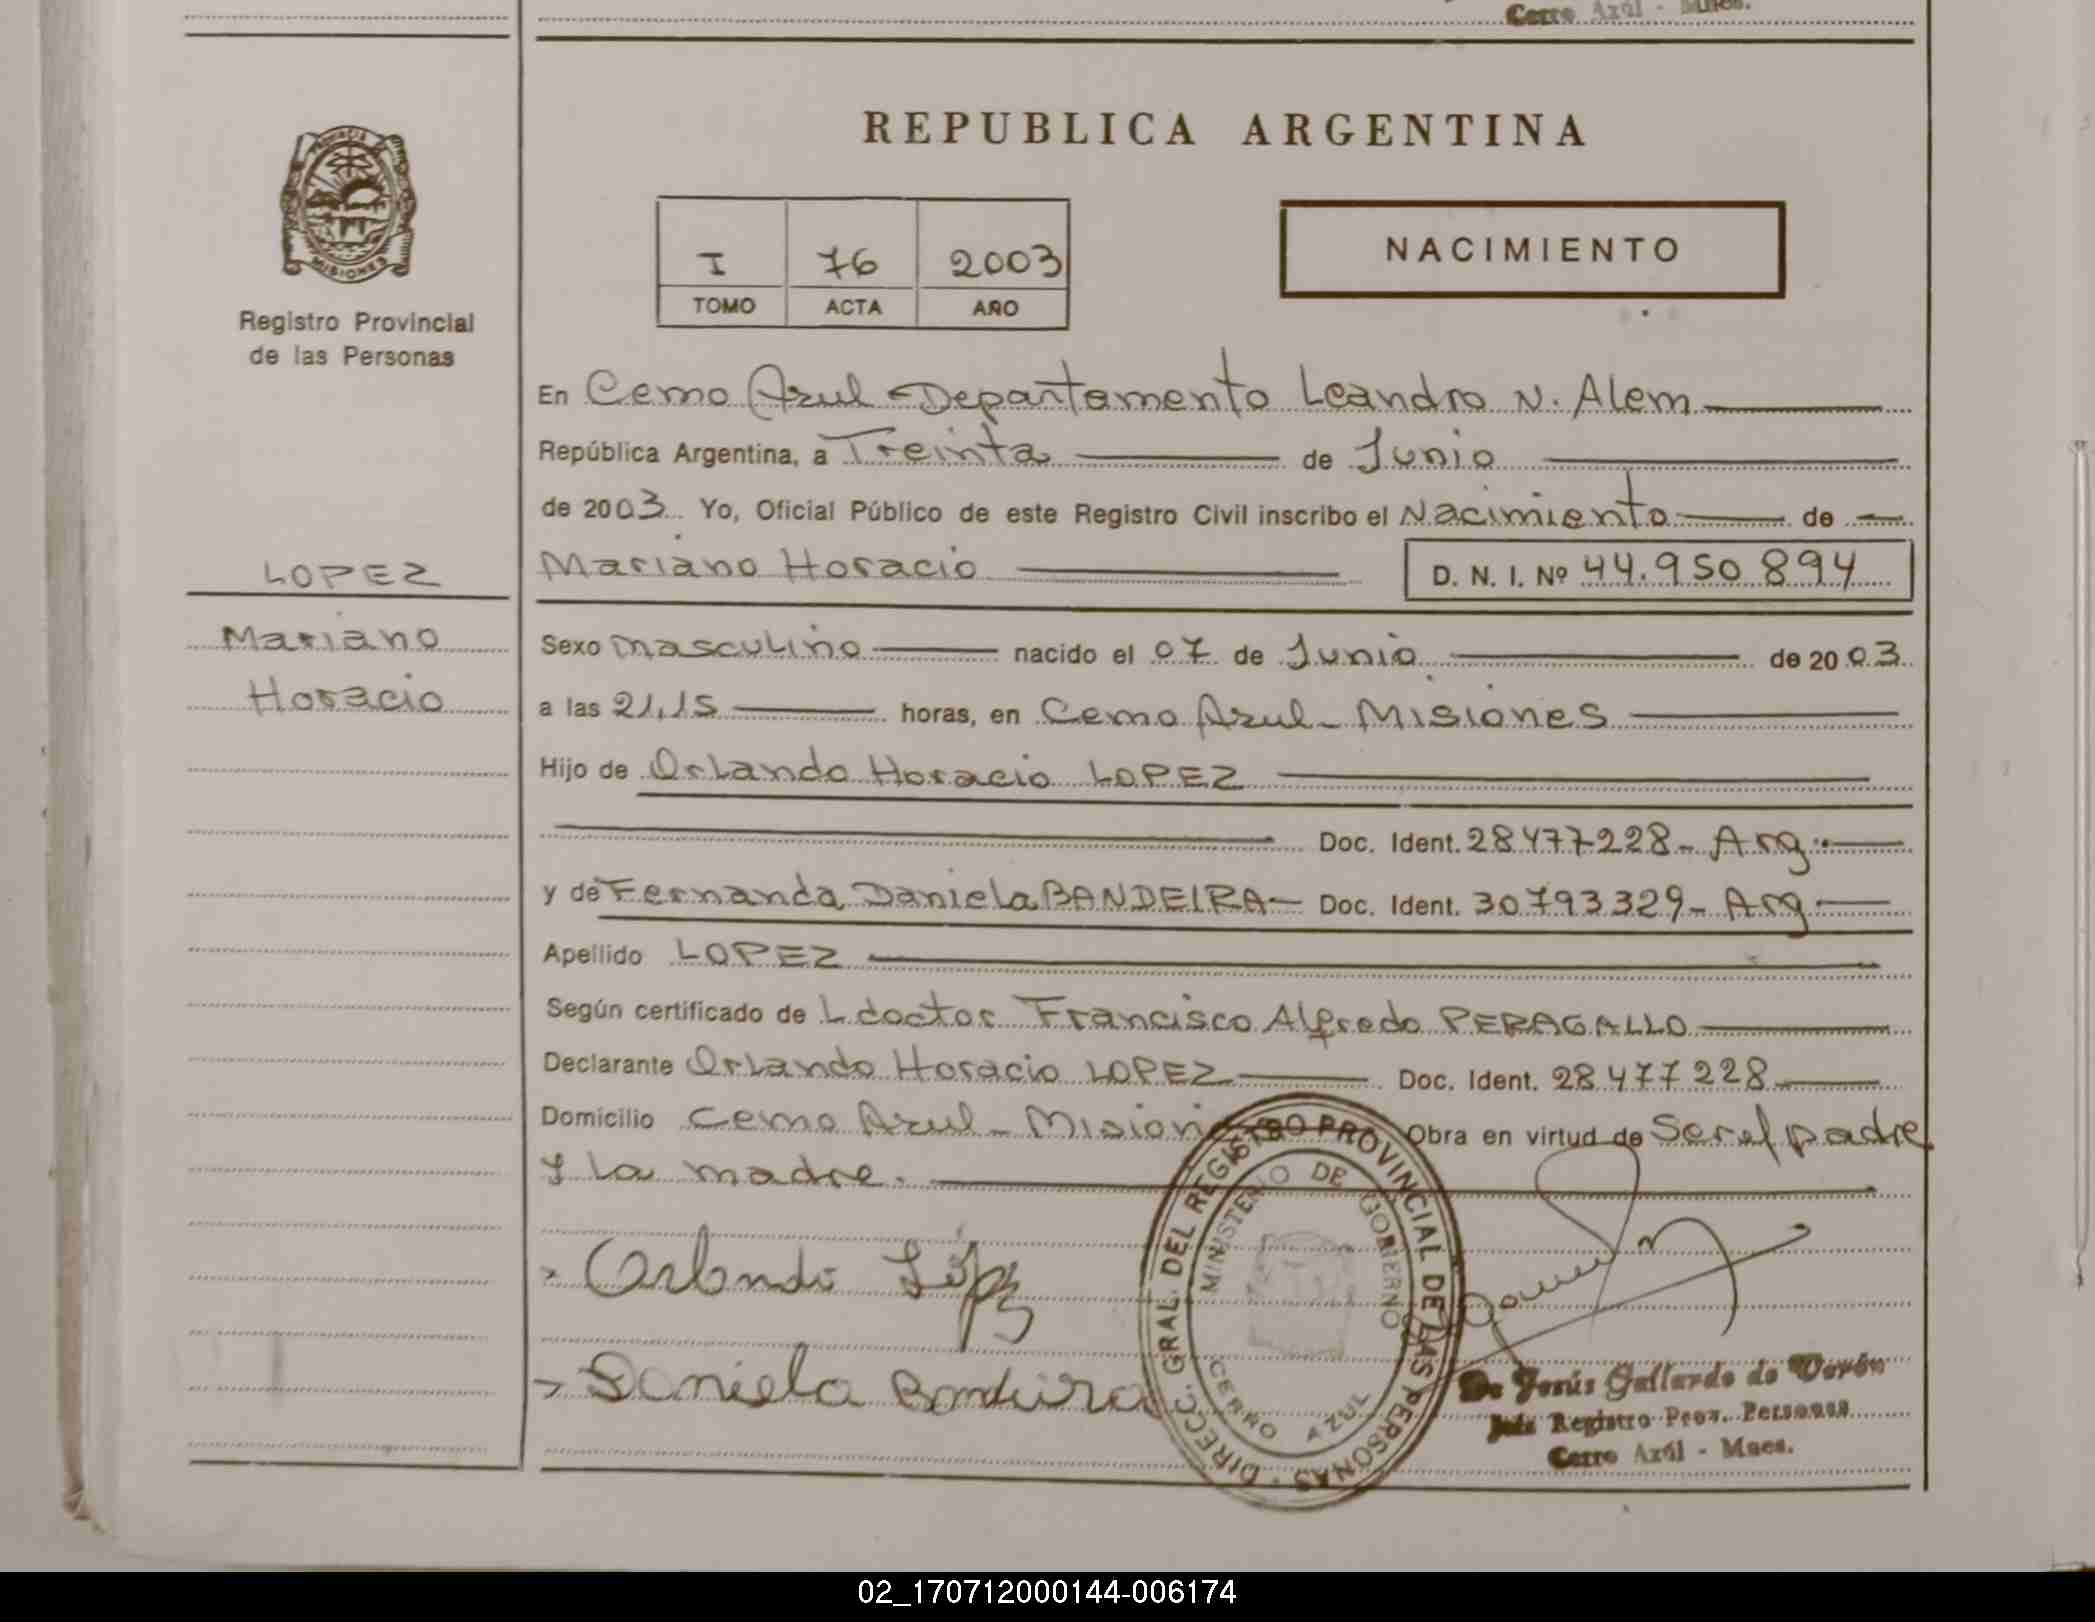 Cerro Azúl - Mnes.
REPUBLICA ARGENTINA
PROVINCIA
MISIONES
Registro Provincial
de las Personas
I 76 2003
TOMO ACTA AÑO
NACIMIENTO
En Cerro Azul - Departamento Leandro N. Alem
República Argentina, a Treinta de Junio
de 2003 Yo, Oficial Público de este Registro Civil inscribo el Nacimiento de
LOPEZ
Mariano Horacio D. N. I. Nº 44.950.894
Mariano
Horacio
Sexo masculino nacido el 07 de Junio de 2003
a las 21,15 horas, en Cerro Azul - Misiones
Hijo de Orlando Horacio LOPEZ
Doc. Ident. 28477228 - Arg.
y de Fernanda Daniela BANDEIRA - Doc. Ident. 30793329 - Arg
Apellido LOPEZ
Según certificado de L doctor Francisco Alfredo PERAGALLO
Declarante Orlando Horacio LOPEZ Doc. Ident. 28477228
Domicilio Cerro Azul - Mision Obra en virtud de Ser el padre
y la madre.
Orlando López
Daniela Bandeira
DIRECC. GRAL. DEL REGISTRO PROVINCIAL DE LAS PERSONAS
MINISTERIO DE GOBIERNO
CERRO AZUL
De Jesús Gallardo de Verón
Jefe Registro Prov. Personas
Cerro Azúl - Mnes.
02_170712000144-006174